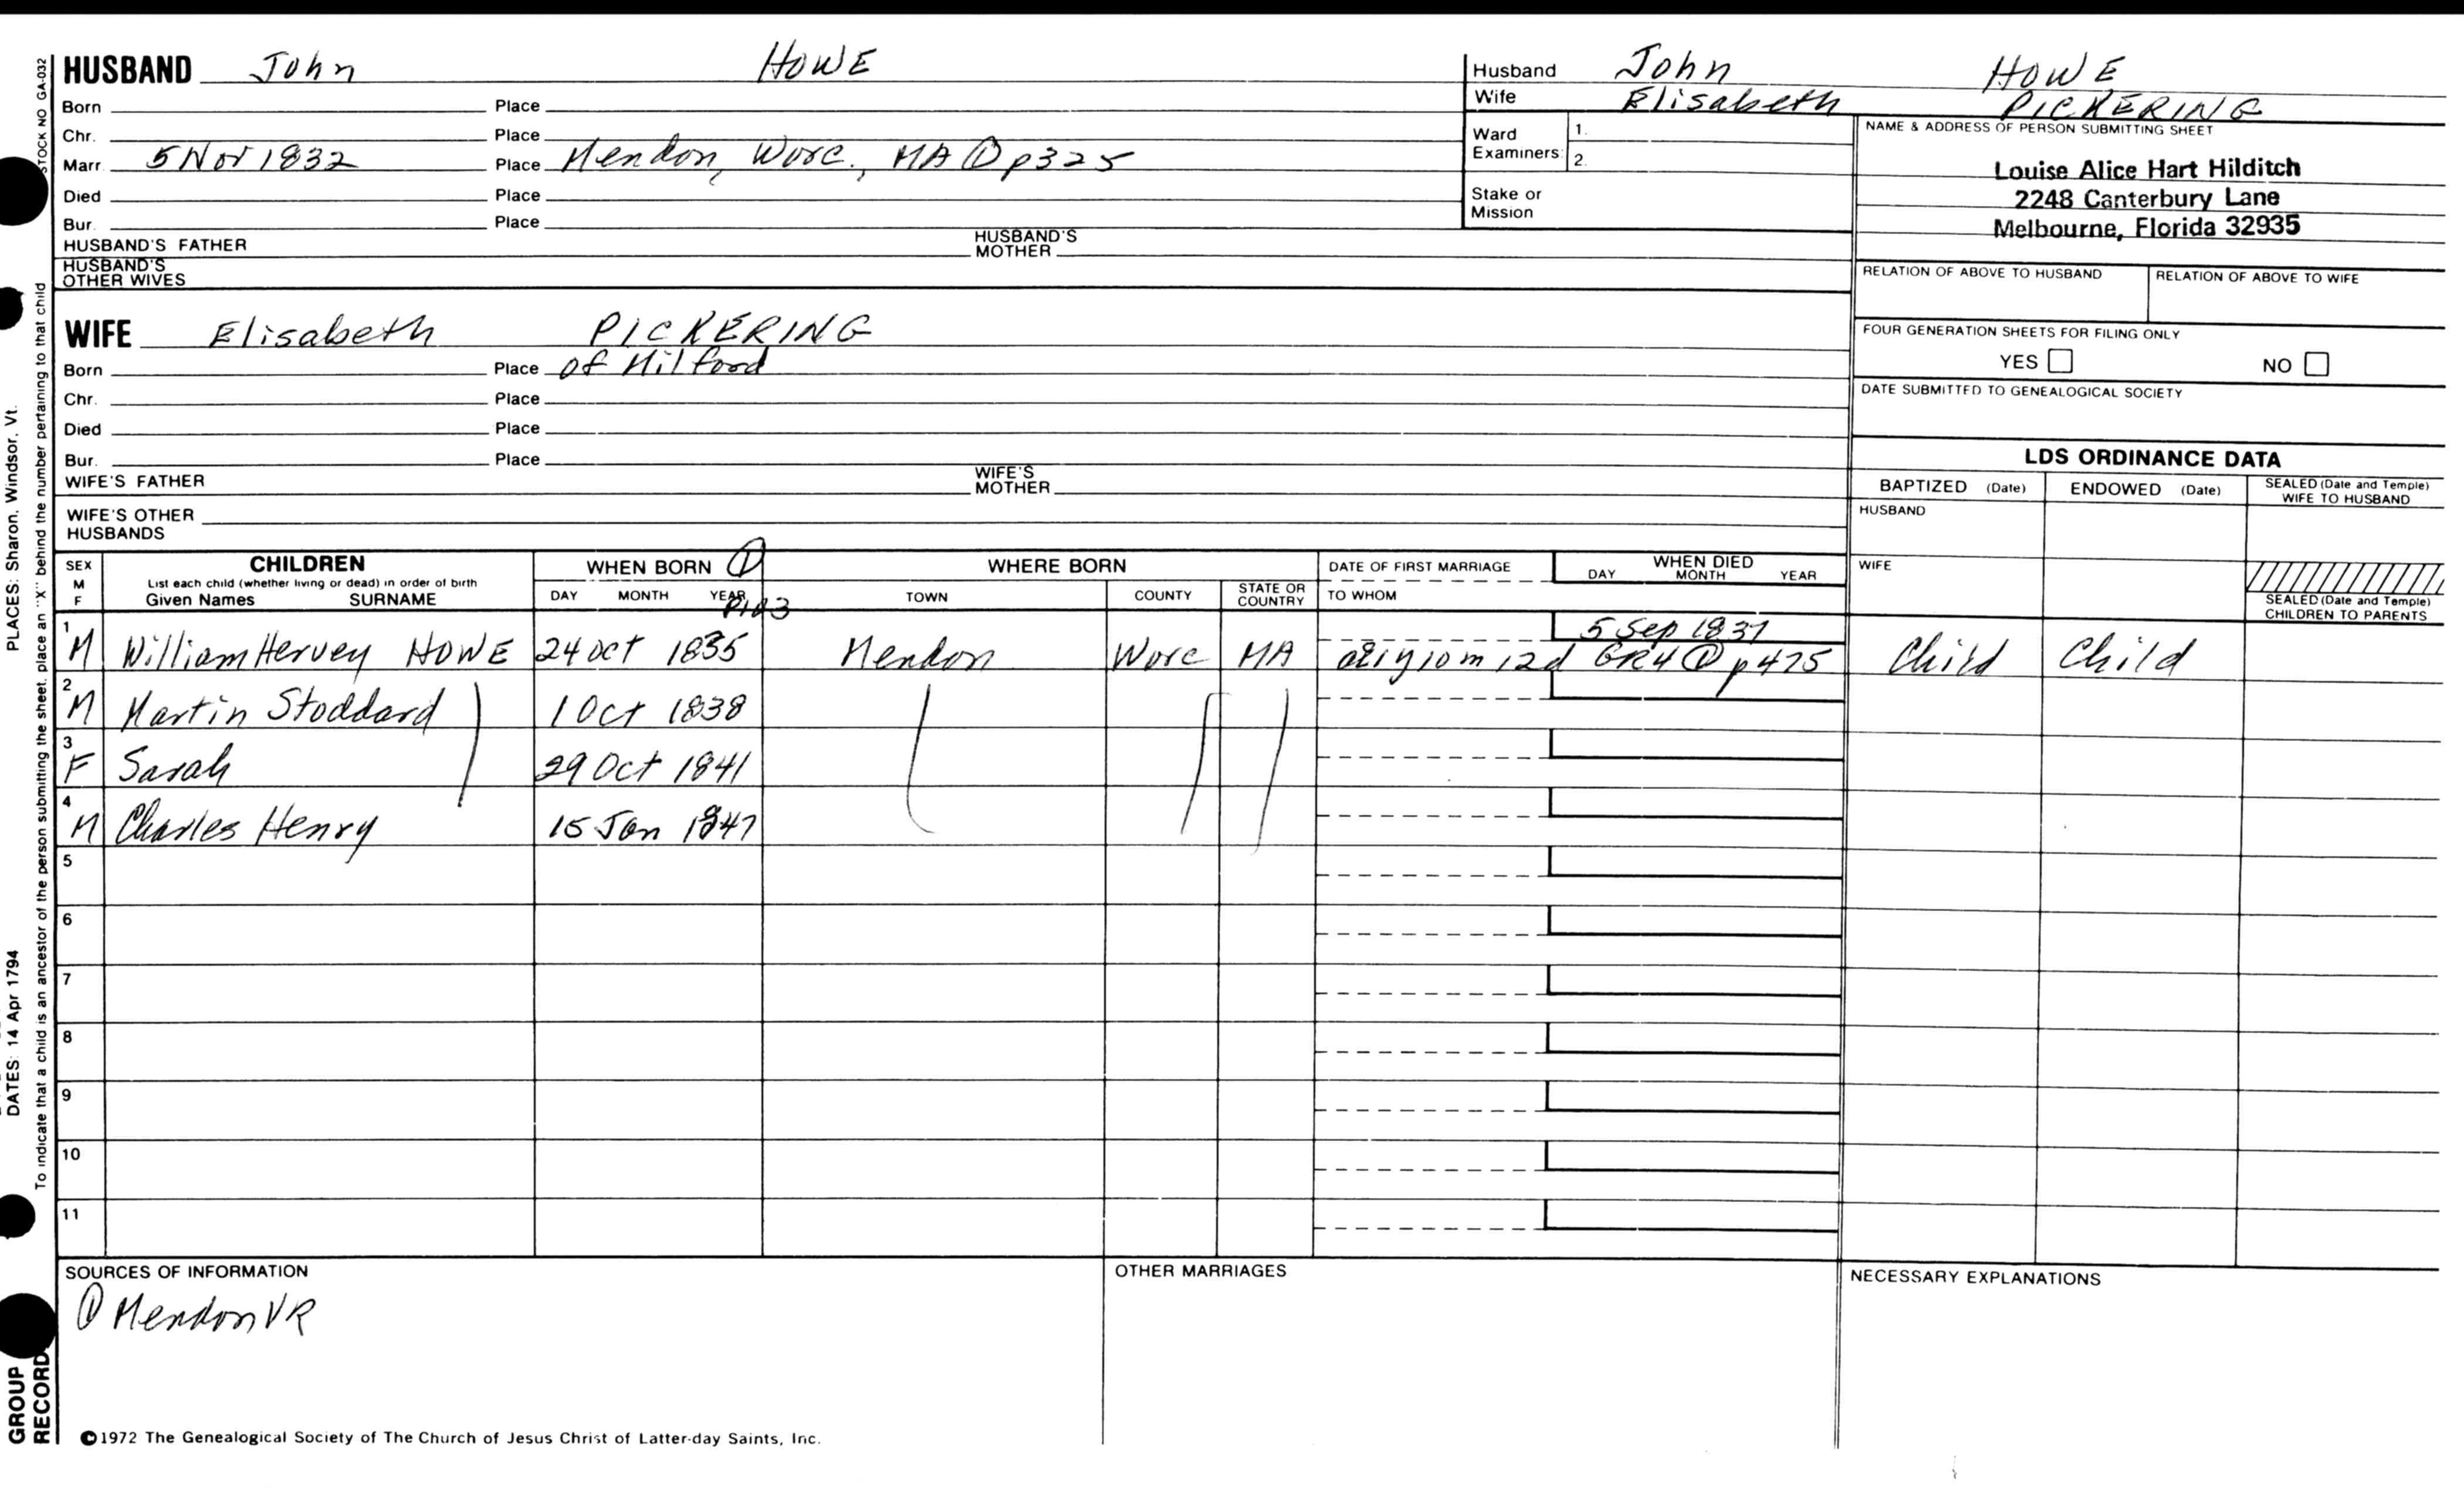 HUSBAND John HOWE
Born Place
Chr. Place
Marr. 5 Nov 1832 Place Mendon, Worc., MA ① p325
Died Place
Bur. Place
HUSBAND'S FATHER HUSBAND'S MOTHER
HUSBAND'S OTHER WIVES
WIFE Elisabeth PICKERING
Born Place of Milford
Chr. Place
Died Place
Bur. Place
WIFE'S FATHER WIFE'S MOTHER
WIFE'S OTHER HUSBANDS
Husband John HOWE
Wife Elisabeth PICKERING
Ward Examiners: 1.
2.
Stake or Mission
NAME & ADDRESS OF PERSON SUBMITTING SHEET
Louise Alice Hart Hilditch
2248 Canterbury Lane
Melbourne, Florida 32935
RELATION OF ABOVE TO HUSBAND RELATION OF ABOVE TO WIFE
FOUR GENERATION SHEETS FOR FILING ONLY
YES NO
DATE SUBMITTED TO GENEALOGICAL SOCIETY
LDS ORDINANCE DATA
BAPTIZED (Date) ENDOWED (Date) SEALED (Date and Temple) WIFE TO HUSBAND
HUSBAND
WIFE
SEALED (Date and Temple) CHILDREN TO PARENTS
SEX M F
CHILDREN
List each child (whether living or dead) in order of birth
Given Names SURNAME
WHEN BORN ①
DAY MONTH YEAR
p103
WHERE BORN
TOWN COUNTY STATE OR COUNTRY
DATE OF FIRST MARRIAGE
TO WHOM
WHEN DIED
DAY MONTH YEAR
5 Sep 1837
1 M William Hervey HOWE 24 Oct 1835 Mendon Worc MA ae 1y 10m 12d GR4 ① p475 Child Child
2 M Martin Stoddard 1 Oct 1838
3 F Sarah 29 Oct 1841
4 M Charles Henry 15 Jan 1847
5
6
7
8
9
10
11
SOURCES OF INFORMATION
① Mendon VR
OTHER MARRIAGES
NECESSARY EXPLANATIONS
©1972 The Genealogical Society of The Church of Jesus Christ of Latter-day Saints, Inc.
STOCK NO GA-032
To indicate that a child is an ancestor of the person submitting the sheet, place an "X" behind the number pertaining to that child
PLACES: Sharon, Windsor, Vt.
DATES: 14 Apr 1794
GROUP RECORD